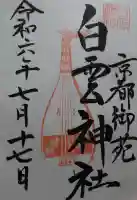 京都御苑
白雲神社
令和六年七月十七日